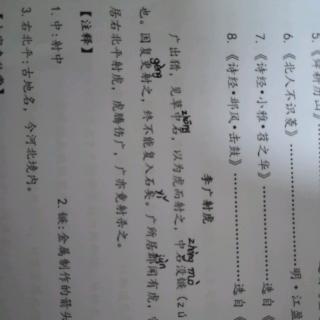 5.《舜耕历山》
6.《北人不识菱》………………明·江盈
7.《诗经·小雅·苕之华》………………选自《
8.《诗经·邶风·击鼓》………………选自《
李广射虎
zhōng zhòng mò
广出猎，见草中石，以为虎而射之，中石没镞（zú
gèng jùn
也。因复更射之，终不能复入石矣。广所居郡闻有虎，
居右北平射虎，虎腾伤广，广亦竟射杀之。
【注释】
1. 中：射中 2. 镞：金属制作的箭头
3. 右北平：古地名，今河北境内。